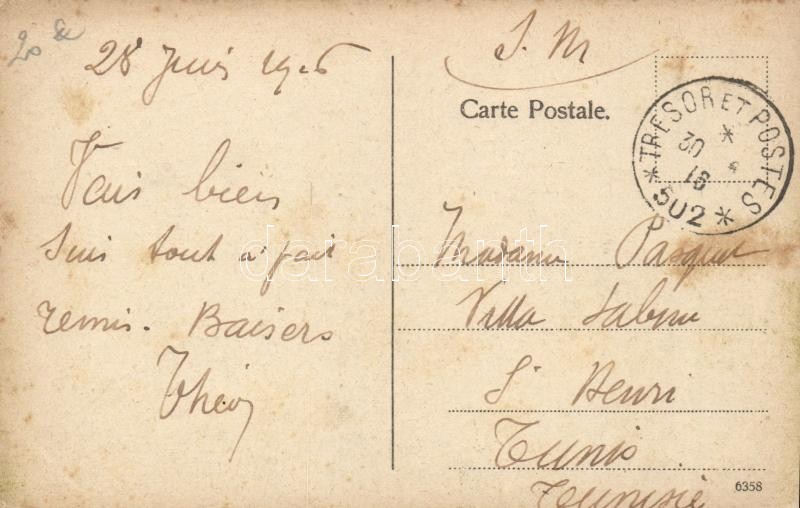 20
28 Juin 1916
Vais bien
Suis tout à fait
remis. Baisers
S. M
Carte Postale.
* TRESOR ET POSTES *
*
30
16
502
Madame Pasquet
Villa Sabine
St Henri
Tunis
Tunisie
6358
darabanth